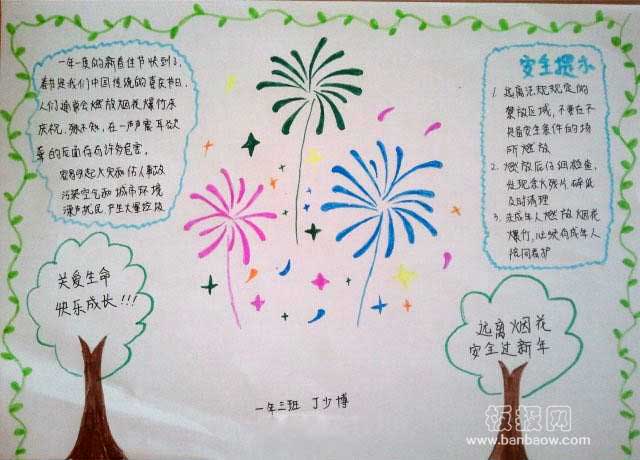 一年一度的新春佳节快到了,
春节是我们中国传统的喜庆节日,
人们通常会燃放烟花爆竹来
庆祝。殊不知,在一声声震耳欲
聋的后面存在许多危害。
容易引起火灾和伤人事故
污染空气和城市环境
噪声扰民 产生大量垃圾
安全提示
1. 远离法规规定的
禁放区域,不要在不
具备安全条件的场
所燃放
2. 燃放后仔细检查,
发现余火残片
及时清理
3. 未成年人燃放烟花
爆竹,必须有成年人
陪同看护
关爱生命
快乐成长!!!
远离烟花
安全过新年
一年三班 丁少博
板报网
www.banbaow.com